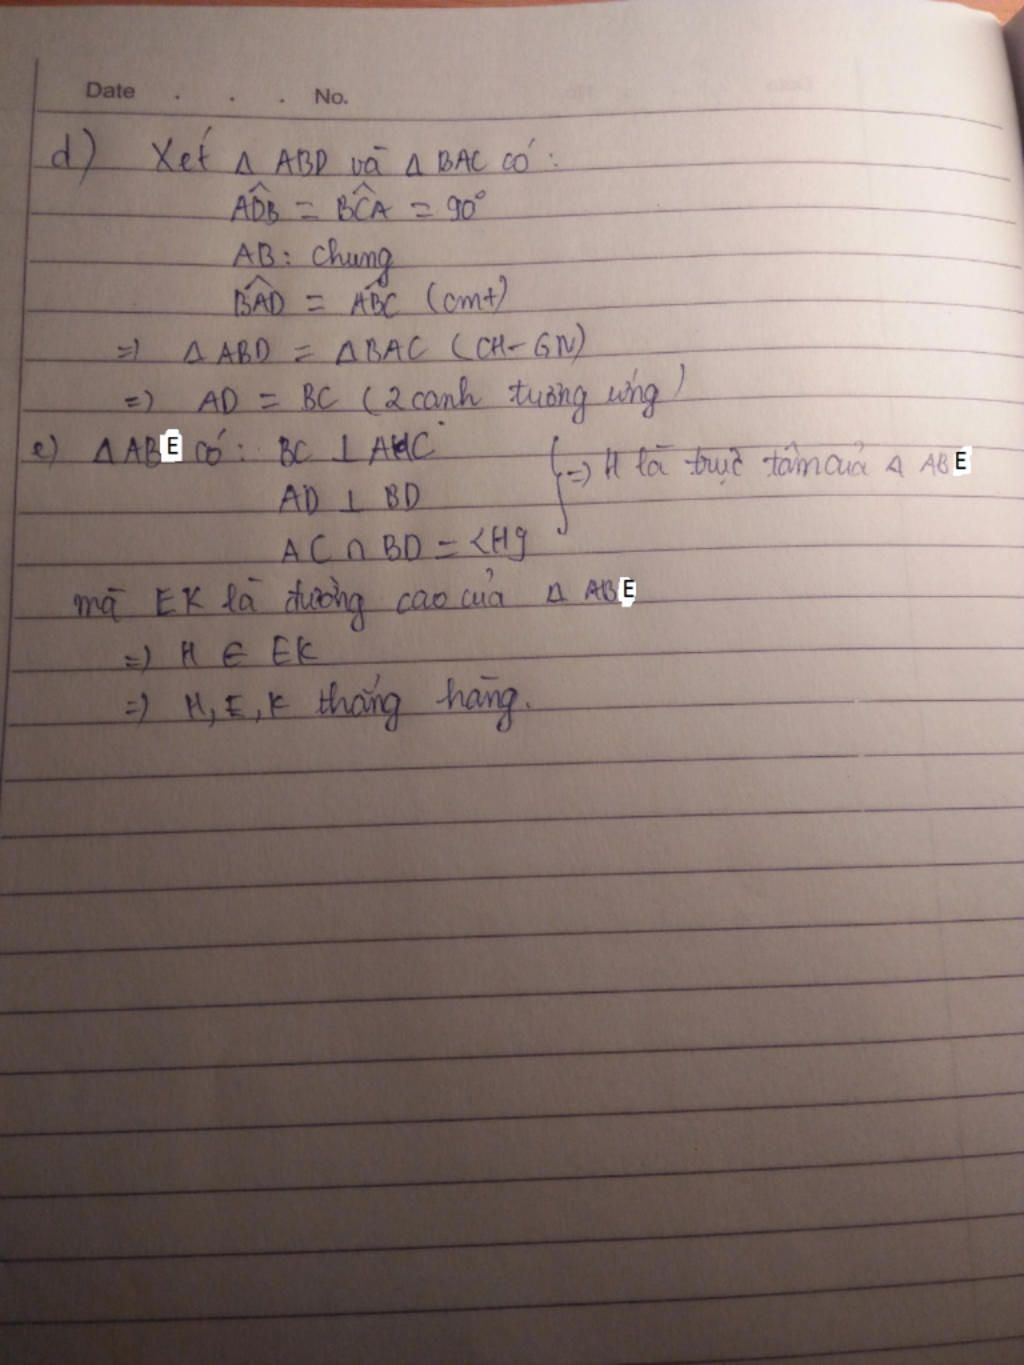 Date . . . No.
d) Xét Δ ABD và Δ BAC có:
ADB̂ = BCÂ = 90°
AB: chung
BAD̂ = ABĈ (cmt)
=) Δ ABD = Δ BAC (CH-GN)
=) AD = BC (2 cạnh tương ứng)
e) Δ ABE có: BC ⊥ AC
AD ⊥ BD } =) H là trực tâm của Δ ABE
AC ∩ BD = {H}
mà EK là đường cao của Δ ABE
=) H ∈ EK
=) H, E, K thẳng hàng.